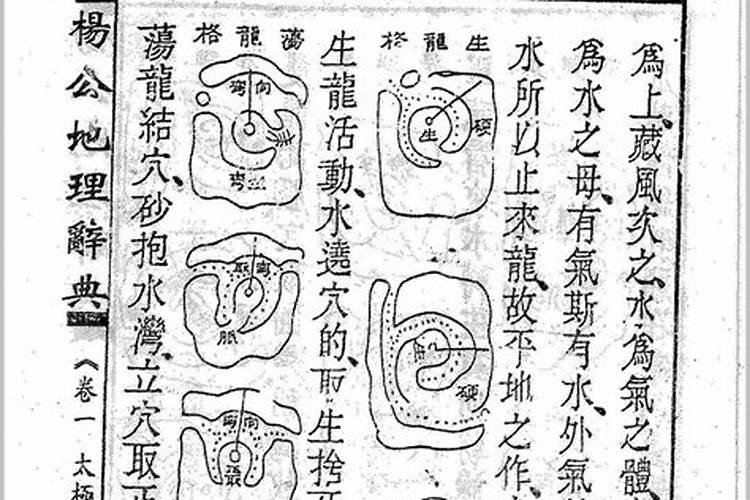 為上、藏風次之、水為氣之體
為水之母、有氣斯有水、外氣
水所以止來龍、故平地之作、
生龍格
生
硬
硬
生龍活動、水遶穴的、取生捨
蕩龍格
向
穴
蕩龍結穴、砂抱水灣、立穴取
楊公地理辭典
《卷一 太極